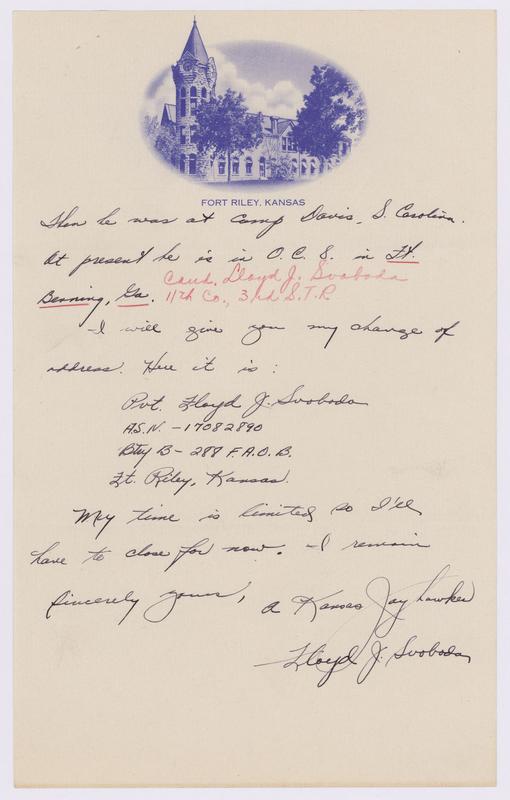 FORT RILEY, KANSAS
Then he was at Camp Davis, S. Carolina.
At present he is in O.C.S. in Ft.
Cand. Lloyd J. Svoboda
Benning, Ga. 11th Co., 3rd S.T.R
I will give you my change of
address. Here it is :
Pvt. Lloyd J. Svoboda
A.S.N. - 17082890
Bty B - 288 F.A.O.B.
Ft. Riley, Kansas.
My time is limited so I'll
have to close for now. I remain
Sincerely yours, a Kansas Jayhawker
Lloyd J. Svoboda